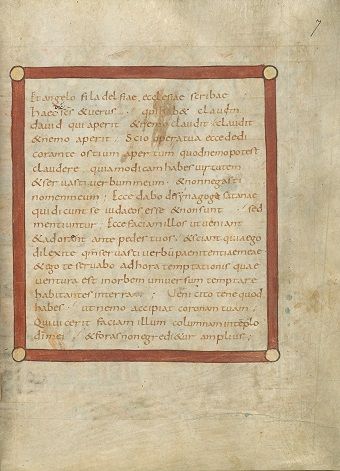 7
Et angelo filadelfiae ecclesiae scribae
haec scs & verus qui hab& clavem
david qui aperit & nemo claudit claudit
& nemo aperit Scio opera tua ecce dedi
coram te ostium apertum quod nemo potest
claudere quia modicam habes virtutem
& servasti verbum meum & non negasti
nomen meum Ecce dabo de synagoge satanae
qui dicunt se iudaeos esse & non sunt sed
mentiuntur Ecce faciam illos ut veniant
& adorent ante pedes tuos & sciant quia ego
dilexi te qm servasti verbu paenitentiae meae
& ego te servabo ad hora temptationis quae
ventura est in orbem universum temptare
habitantes in terra Veni cito tene quod
habes ut nemo accipiat coronam tuam
Qui vicerit faciam illum columnam in teplo
di mei & foras non egredi&ur amplius